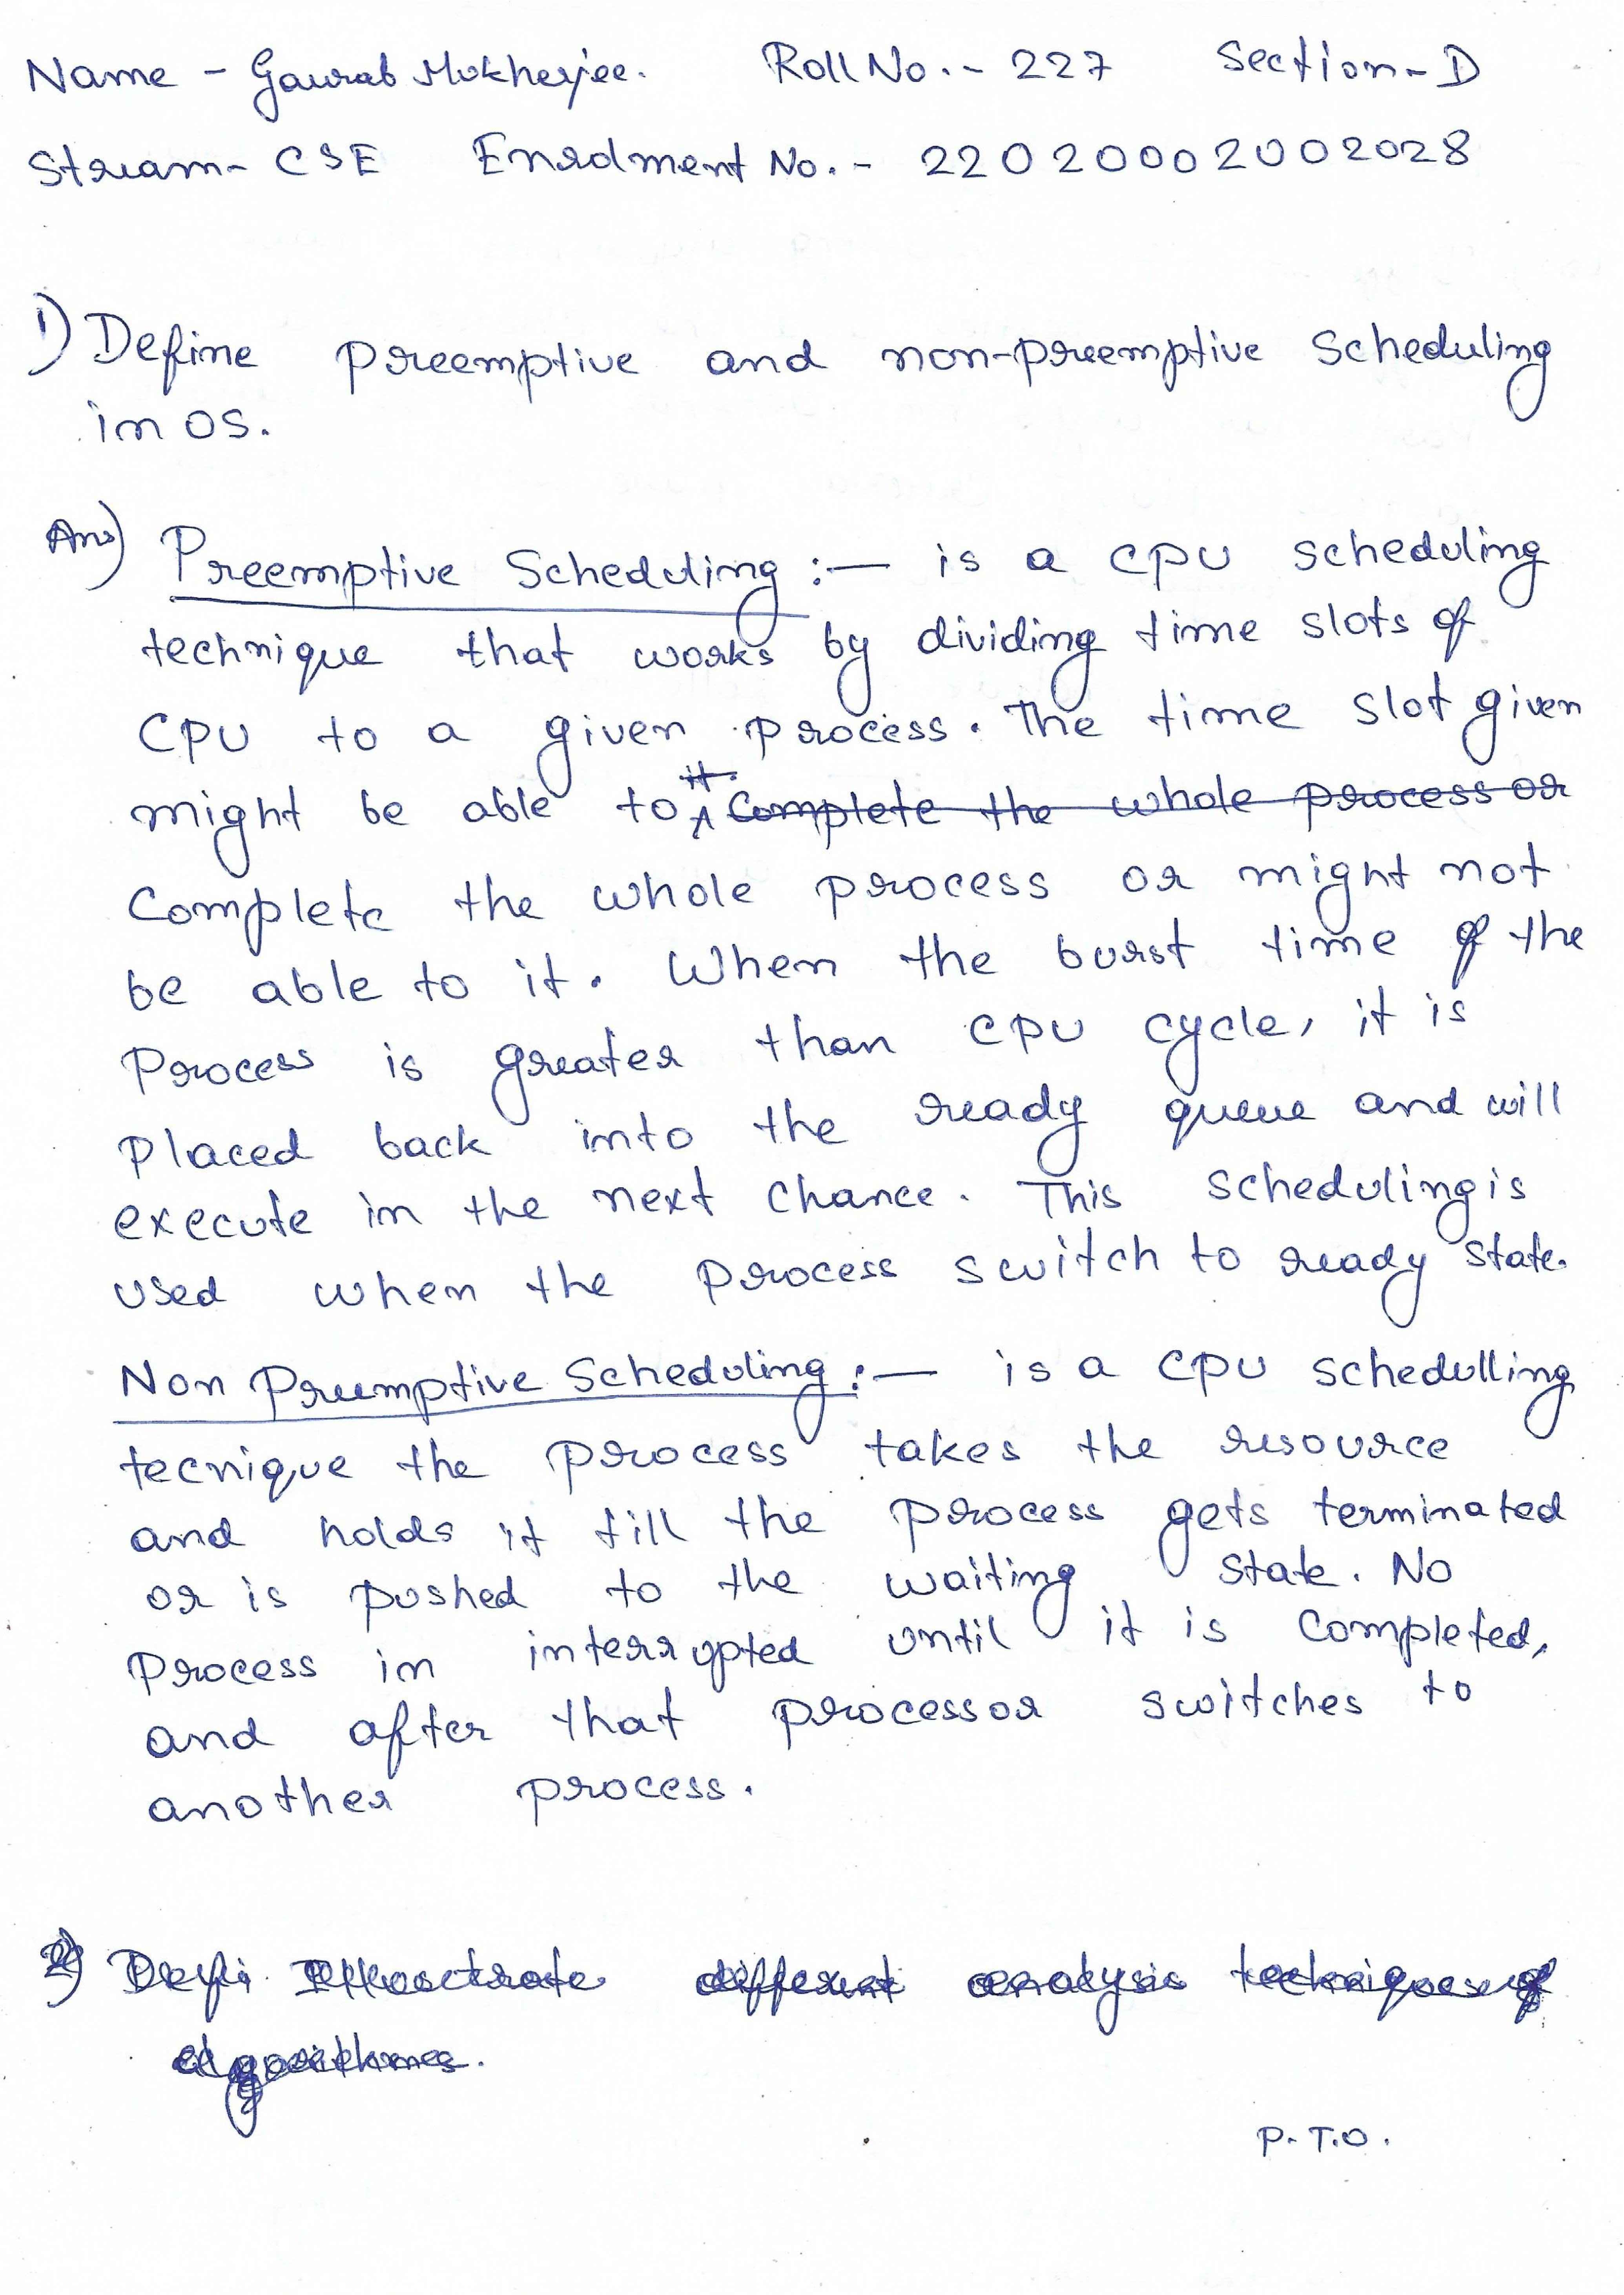 Name - Gourab Mukherjee. Roll No. - 227 Section - D
Stream - CSE Enrolment No. - 22020002002028
1) Define preemptive and non-preemptive scheduling
in OS.
Ans) Preemptive Scheduling :— is a CPU scheduling
technique that works by dividing time slots of
CPU to a given process. The time slot given
might be able to it complete the whole process or
complete the whole process or might not
be able to it. When the burst time of the
process is greater than CPU cycle, it is
placed back into the ready queue and will
execute in the next chance. This scheduling is
used when the process switch to ready state.
Non Preemptive Scheduling :— is a CPU schedulling
tecnique the process takes the resource
and holds it till the process gets terminated
or is pushed to the waiting state. No
process in interrupted until it is completed,
and after that processor switches to
another process.
2) Defi Illustrate different analysis techniques of
algorithms.
P.T.O.